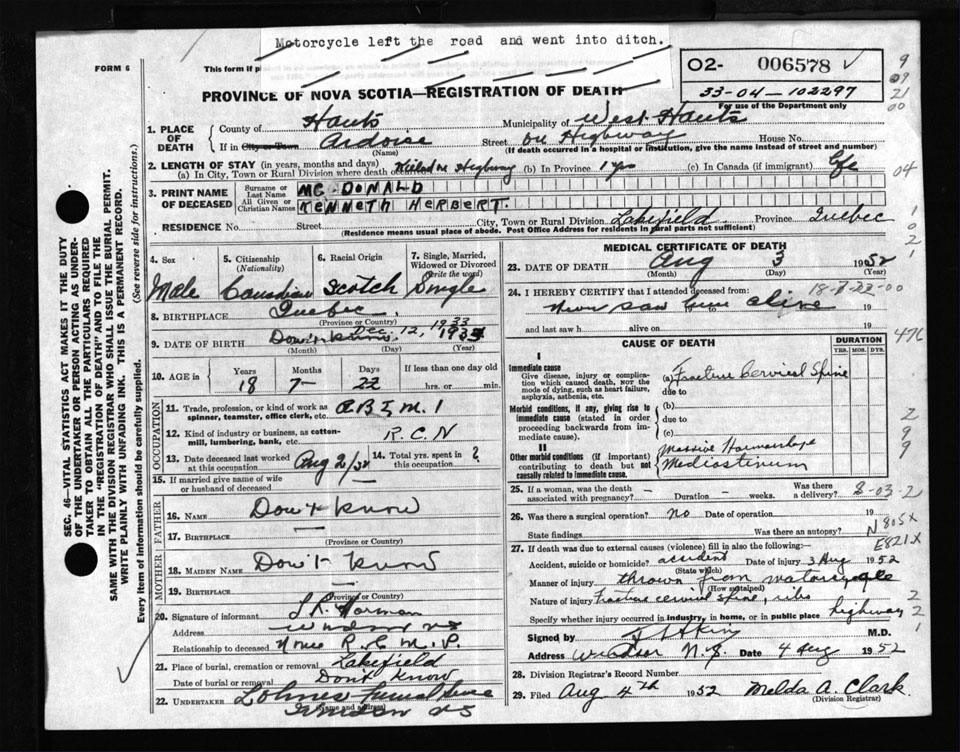 Motorcycle left the road and went into ditch.
FORM 6
This form if p
O2- 006578
33-04-102297
For use of the Department only
9
09
21
00
PROVINCE OF NOVA SCOTIA—REGISTRATION OF DEATH
1. PLACE OF DEATH
County of Hants Municipality of West Hants
If in City or Town Ardoise (Name) Street on Highway House No.
(If death occurred in a hospital or institution, give the name instead of street and number)
2. LENGTH OF STAY (in years, months and days)
(a) In City, Town or Rural Division where death occurred Killed on Highway (b) In Province 1 yr (c) In Canada (if immigrant) Life
04
3. PRINT NAME OF DECEASED
Surname or Last Name MC DONALD
All Given or Christian Names KENNETH HERBERT.
RESIDENCE No. Street City, Town or Rural Division Lakefield Province Quebec
(Residence means usual place of abode. Post Office Address for residents in rural parts not sufficient)
1
0
2
4. Sex Male
5. Citizenship (Nationality) Canadian
6. Racial Origin Scotch
7. Single, Married, Widowed or Divorced (Write the word) Single
8. BIRTHPLACE Quebec
(Province or Country)
9. DATE OF BIRTH Don't know Dec. 12, 1933
(Month) (Day) (Year)
10. AGE in Years 18 Months 7 Days 22 If less than one day
hrs. or min.
OCCUPATION
11. Trade, profession, or kind of work as spinner, teamster, office clerk, etc. A B L M. 1
12. Kind of industry or business, as cotton-mill, lumbering, bank, etc. R.C.N
13. Date deceased last worked at this occupation Aug 2/52
14. Total yrs. spent in this occupation ?
15. If married give name of wife or husband of deceased —
FATHER
16. NAME Don't know
17. BIRTHPLACE —
(Province or Country)
MOTHER
18. MAIDEN NAME Don't know
19. BIRTHPLACE —
(Province or Country)
20. Signature of informant
Address Windsor NS
Relationship to deceased None R.C.M.P.
21. Place of burial, cremation or removal Lakefield
Date of burial or removal Don't Know
22. UNDERTAKER Lohnes Funeral Home
(Name and address) Windsor NS
MEDICAL CERTIFICATE OF DEATH
23. DATE OF DEATH Aug 3 1952
(Month) (Day) (Year)
24. I HEREBY CERTIFY that I attended deceased from:
never saw him alive 19
and last saw h alive on 19
476
CAUSE OF DEATH
DURATION
YRS. MOS. DYS.
I
Immediate cause
Give disease, injury or complication which caused death, NOT the mode of dying, such as heart failure, asphyxia, asthenia, etc.
(a) Fracture Cervical Spine
due to
Morbid conditions, if any, giving rise to immediate cause (stated in order proceeding backwards from immediate cause).
(b)
due to
(c)
II
Other morbid conditions (if important) contributing to death but not causally related to immediate cause.
Massive Haemorrhage
Mediastinum
2
9
9
25. If a woman, was the death associated with pregnancy? — Duration — weeks. Was there a delivery? 8-03-2
26. Was there a surgical operation? no Date of operation 19
State findings Was there an autopsy?
N 805X
E821X
27. If death was due to external causes (violence) fill in also the following:—
Accident, suicide or homicide? accident Date of injury 3 Aug 1952
(State which)
Manner of injury thrown from motorcycle
(How sustained)
Nature of injury Fracture cervical spine, ribs
Specify whether injury occurred in industry, in home, or in public place highway
2
2
Signed by M.D.
Address Windsor N.S. Date 4 Aug 1952
28. Division Registrar's Record Number
29. Filed Aug 4th 1952 Melda A. Clark
(Division Registrar)
SEC. 46—VITAL STATISTICS ACT MAKES IT THE DUTY OF THE UNDERTAKER OR PERSON ACTING AS UNDERTAKER TO OBTAIN ALL THE PARTICULARS REQUIRED IN THE "REGISTRATION OF DEATH" AND TO FILE THE SAME WITH THE DIVISION REGISTRAR WHO SHALL ISSUE THE BURIAL PERMIT.
WRITE PLAINLY WITH UNFADING INK. THIS IS A PERMANENT RECORD.
Every item of information should be carefully supplied. (See reverse side for instructions.)